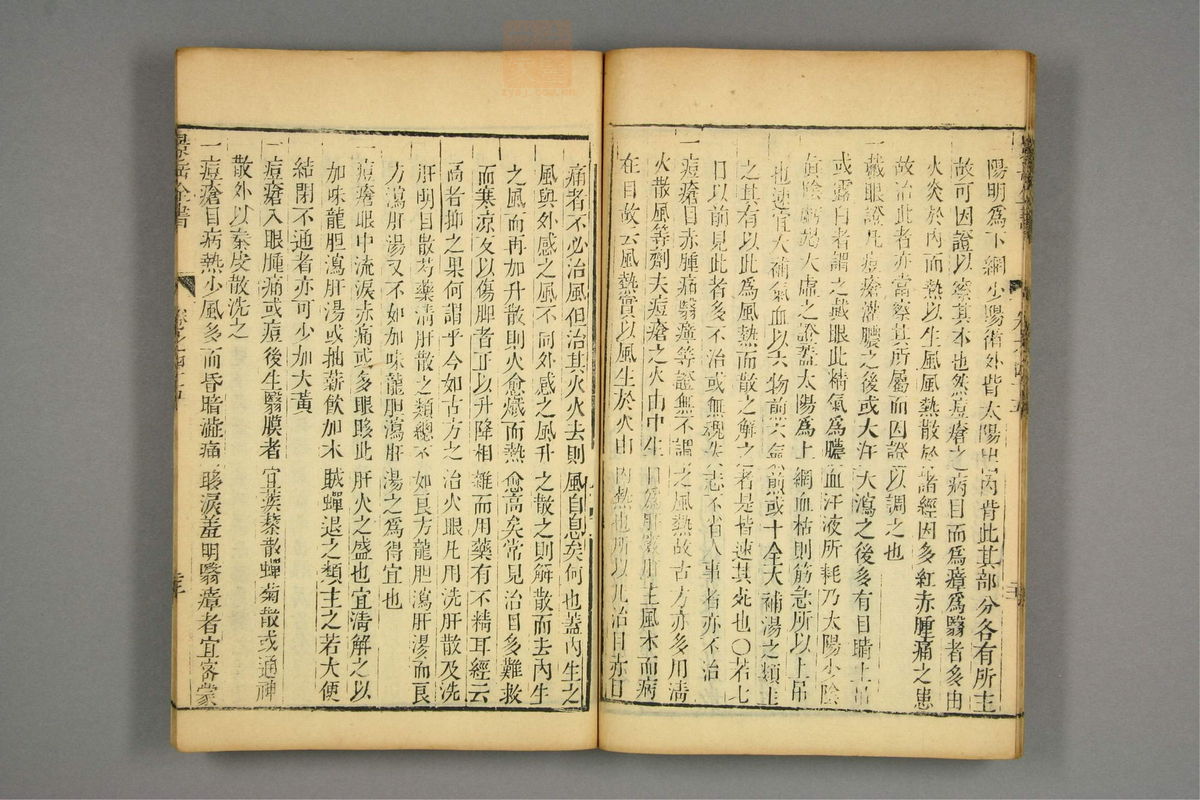 陽明爲下綱少陽銳外眥太陽內眥此其部分各有所主
故可因證以察其本也然痘瘡之病目而爲瘴爲翳者多由
火炎於內而熱以生風風熱散於諸經因多紅赤腫痛之患
故治此者亦當察其所屬而因證以調之也
一戴眼證凡痘瘡灌膿之後或大汗大瀉之後多有目睛上吊
或露白者謂之戴眼此精氣爲膿血汗液所耗乃太陽少陰
眞陰虧竭大虛之證蓋太陽爲上網血枯則筋急所以上吊
也速宜大補氣血以六物煎六氣煎或十全大補湯之類主
之其有以此爲風熱而散之解之者是皆速其死也〇若七
日以前見此者多不治或無魂失志不省人事者亦不治
一痘瘡目赤腫痛翳瘴等證無不謂之風熱故古方亦多用淸
火散風等劑夫痘瘡之火由中生目爲肝竅肝主風木而病
在目故云風熱實以風生於火由內熱也所以凡治目赤目
痛者不必治風但治其火火去則風自息矣何也蓋內生之
風與外感之風不同外感之風升之散之則解散而去內生
之風而再加升散則火愈熾而熱愈高矣常見治目多難救
而寒凉反以傷脾者正以升降相雜而用藥有不精耳經云
高者抑之果何謂乎今如古方之治火眼凡用洗肝散及洗
肝明目散芍藥淸肝散之類總不如良方龍胆瀉肝湯而良
方瀉肝湯又不如加味龍胆瀉肝湯之爲得宜也
一痘瘡眼中流淚赤痛或多眼眵此肝火之盛也宜淸解之以
加味龍胆瀉肝湯或抽薪飲加木賊蟬退之類主之若大便
結閉不通者亦可少加大黃
一痘瘡入眼腫痛或痘後生翳膜者宜蒺藜散蟬菊散或通神
散外以秦皮散洗之
一痘瘡目病熱少風多而昏暗澁痛眵淚羞明翳瘴者宜密蒙
景岳全書